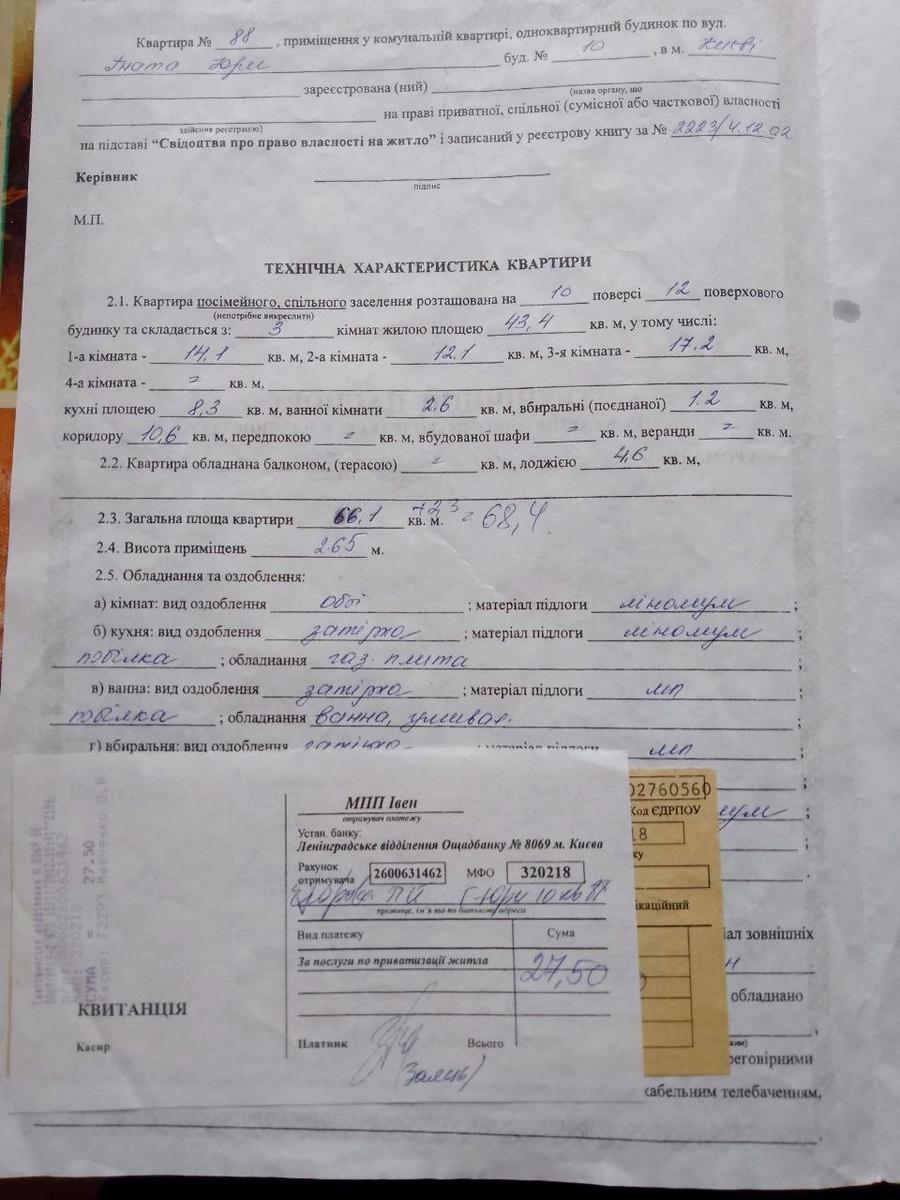 Квартира № 88, приміщення у комунальній квартирі, одноквартирний будинок по вул.
Гната Юри буд. № 10, в м. Києві
зареєстрована (ний)
(назва органу, що
на праві приватної, спільної (сумісної або часткової) власності
здійснив реєстрацію)
на підставі “Свідоцтва про право власності на житло” і записаний у реєстрову книгу за № 2223/4.12.02
Керівник
підпис
М.П.
ТЕХНІЧНА ХАРАКТЕРИСТИКА КВАРТИРИ
2.1. Квартира посімейного, спільного заселення розташована на 10 поверсі 12 поверхового
(непотрібне викреслити)
будинку та складається з: 3 кімнат жилою площею 43,4 кв. м, у тому числі:
1-а кімната - 14,1 кв. м, 2-а кімната - 12.1 кв. м, 3-я кімната - 17.2 кв. м,
4-а кімната - = кв. м,
кухні площею 8,3 кв. м, ванної кімнати 2.6 кв. м, вбиральні (поєднаної) 1.2 кв. м,
коридору 10,6 кв. м, передпокою = кв. м, вбудованої шафи = кв. м, веранди = кв. м.
2.2. Квартира обладнана балконом, (терасою) = кв. м, лоджією 4,6 кв. м,
2.3. Загальна площа квартири 66,1 кв. м. +2,3 = 68,4
2.4. Висота приміщень 2.65 м.
2.5. Обладнання та оздоблення:
а) кімнат: вид оздоблення обої ; матеріал підлоги ліноліум ;
б) кухня: вид оздоблення затірка ; матеріал підлоги ліноліум ;
побілка ; обладнання газ. плита ;
в) ванна: вид оздоблення затірка ; матеріал підлоги мп
побілка ; обладнання ванна, умивал. ;
г) вбиральня: вид оздоблення затірка ; матеріал підлоги мп ;
МПП Івен
отримувач платежу
Устан. банку:
Ленінградське відділення Ощадбанку № 8069 м. Києва
Рахунок отримувача 2600631462 МФО 320218
Г-Юри 10 кв
прізвище, ім'я та по батькові, адреса
Вид платежу Сума
За послуги по приватизації житла 27,50
КВИТАНЦІЯ
Платник Всього
Касир
СУМА = 27.50
02760560
Код ЄДРПОУ
18
ку
ікаційний
іал зовнішніх
н
обладнано
реговірними
кабельним телебаченням,